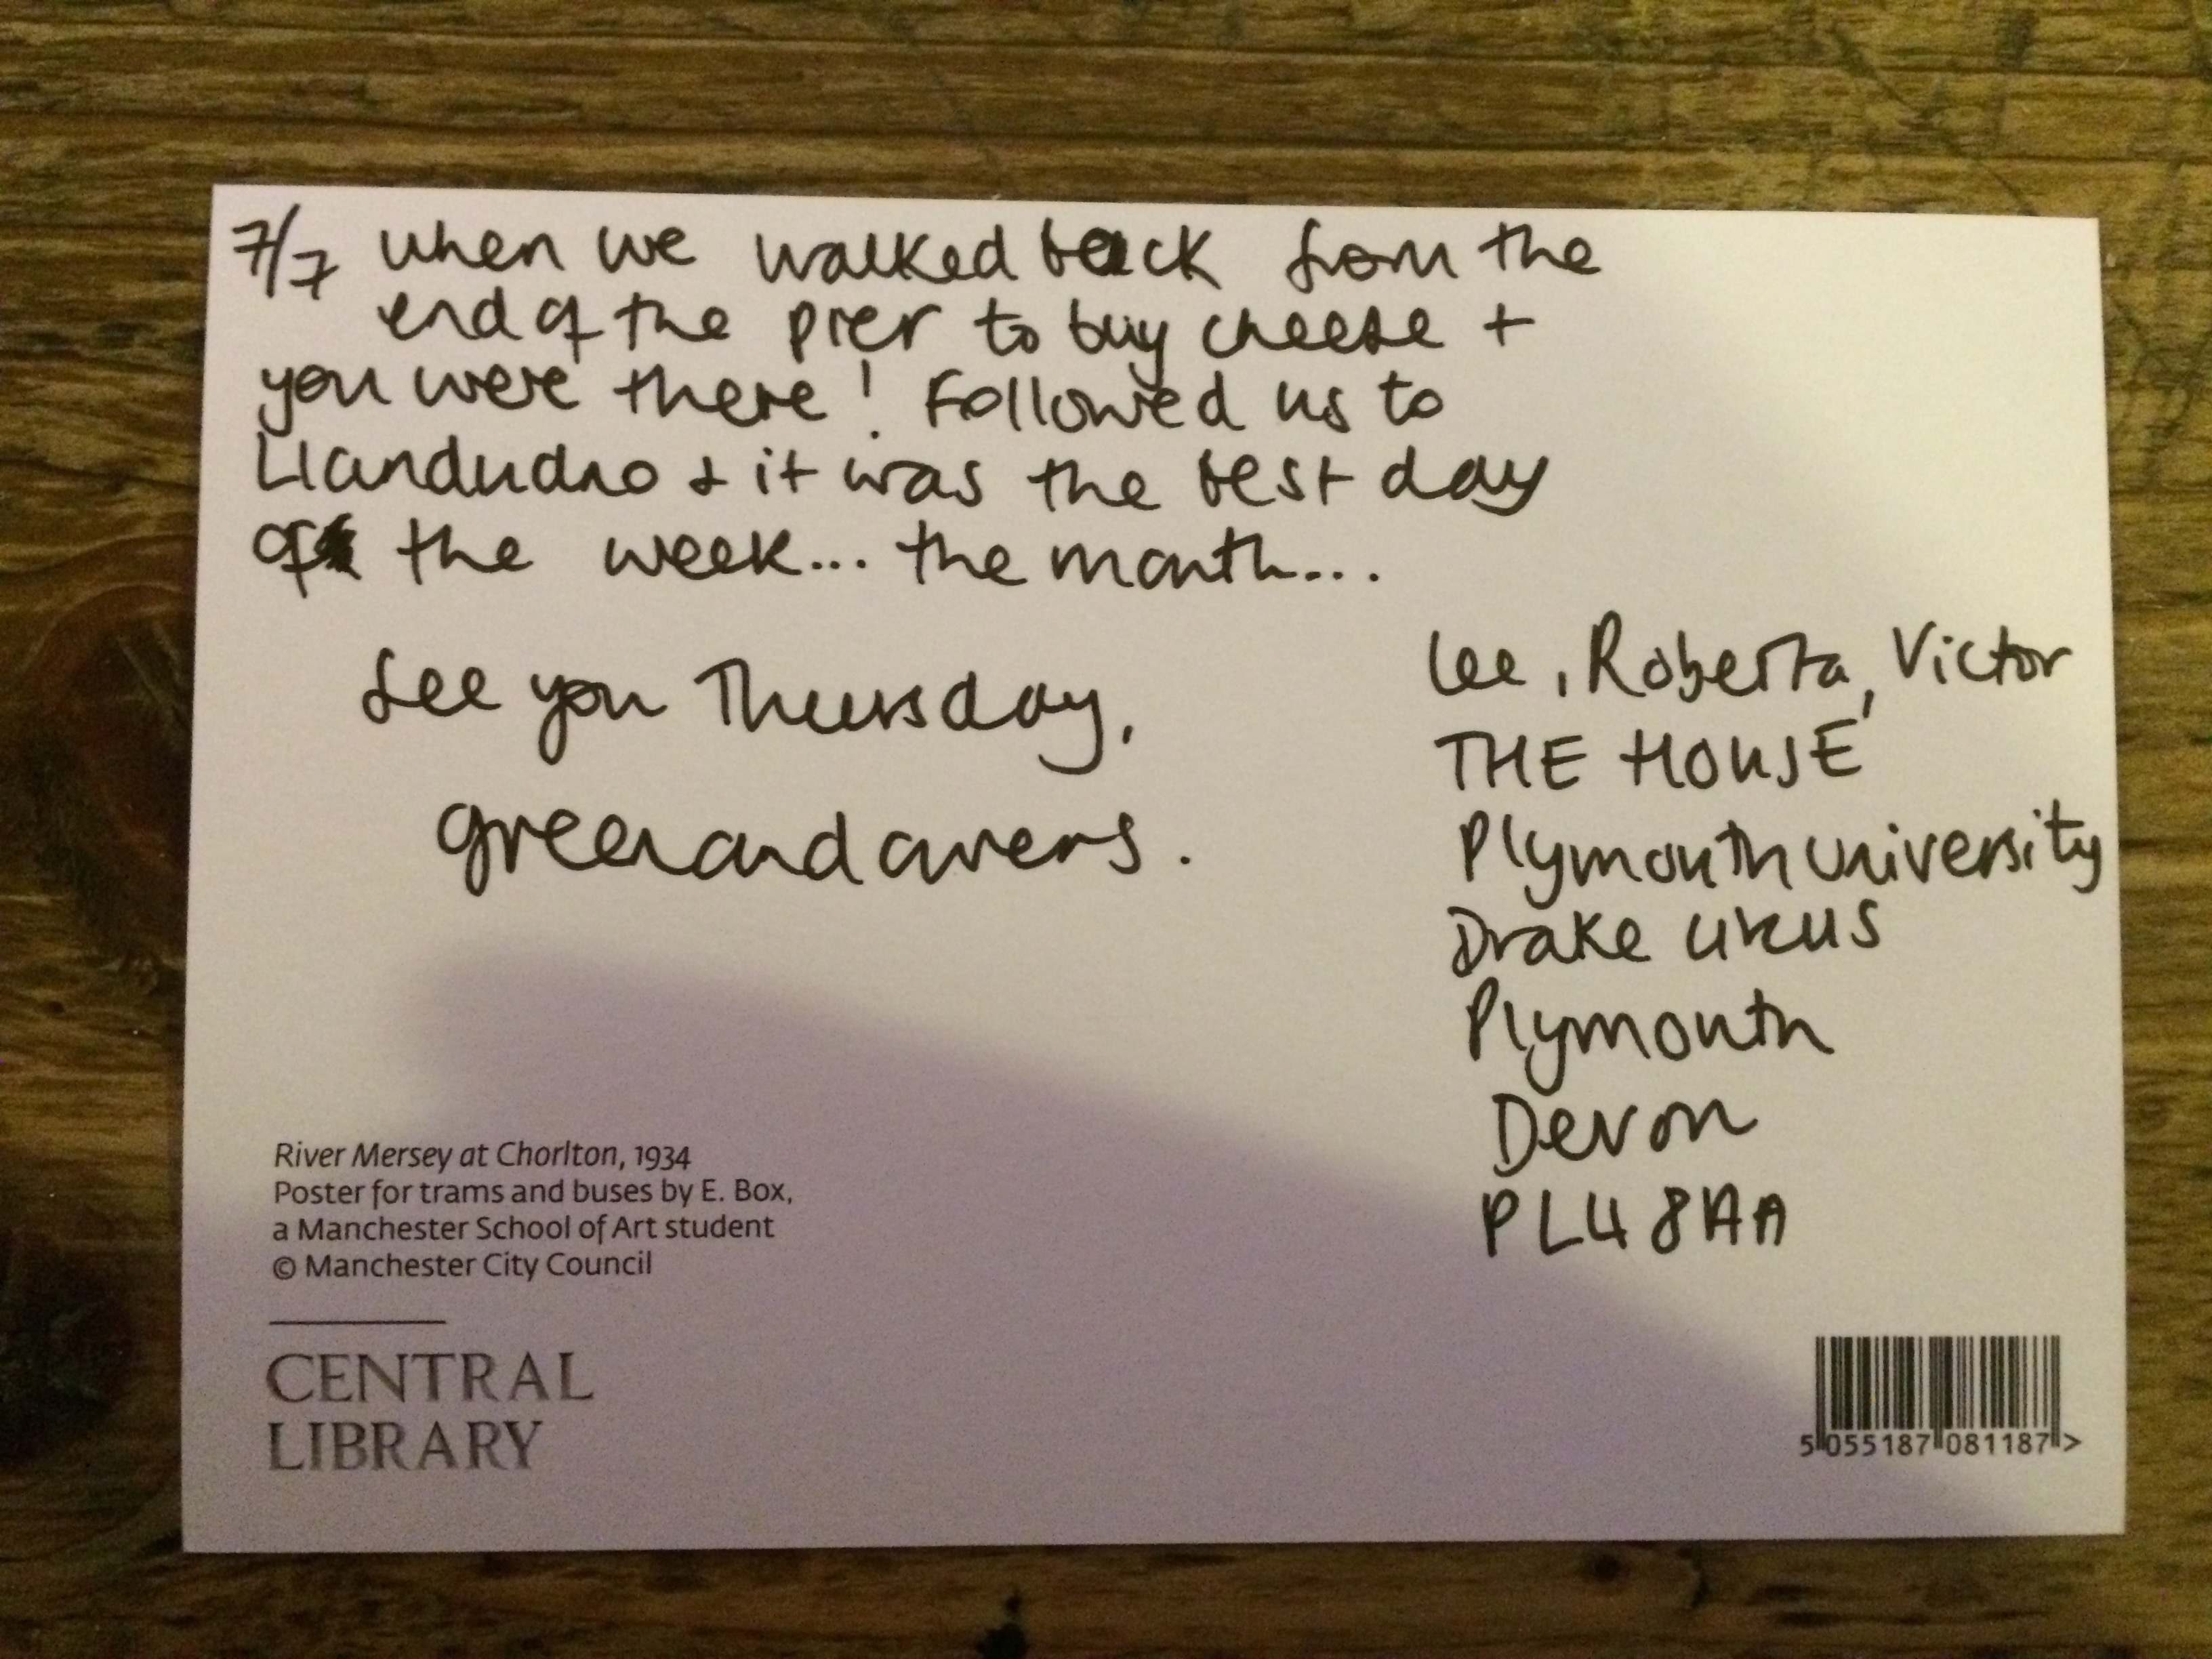 7/7 when we walked back from the
end of the pier to buy cheese +
you were there! Followed us to
Llandudno + it was the best day
of the week... the month...
See you Thursday,
greenandowens.
Lee, Roberta, Victor
THE HOUSE
Plymouth University
Drake Circus
Plymouth
Devon
PL4 8AA
River Mersey at Chorlton, 1934
Poster for trams and buses by E. Box,
a Manchester School of Art student
© Manchester City Council
CENTRAL
LIBRARY
5 055187 081187 >